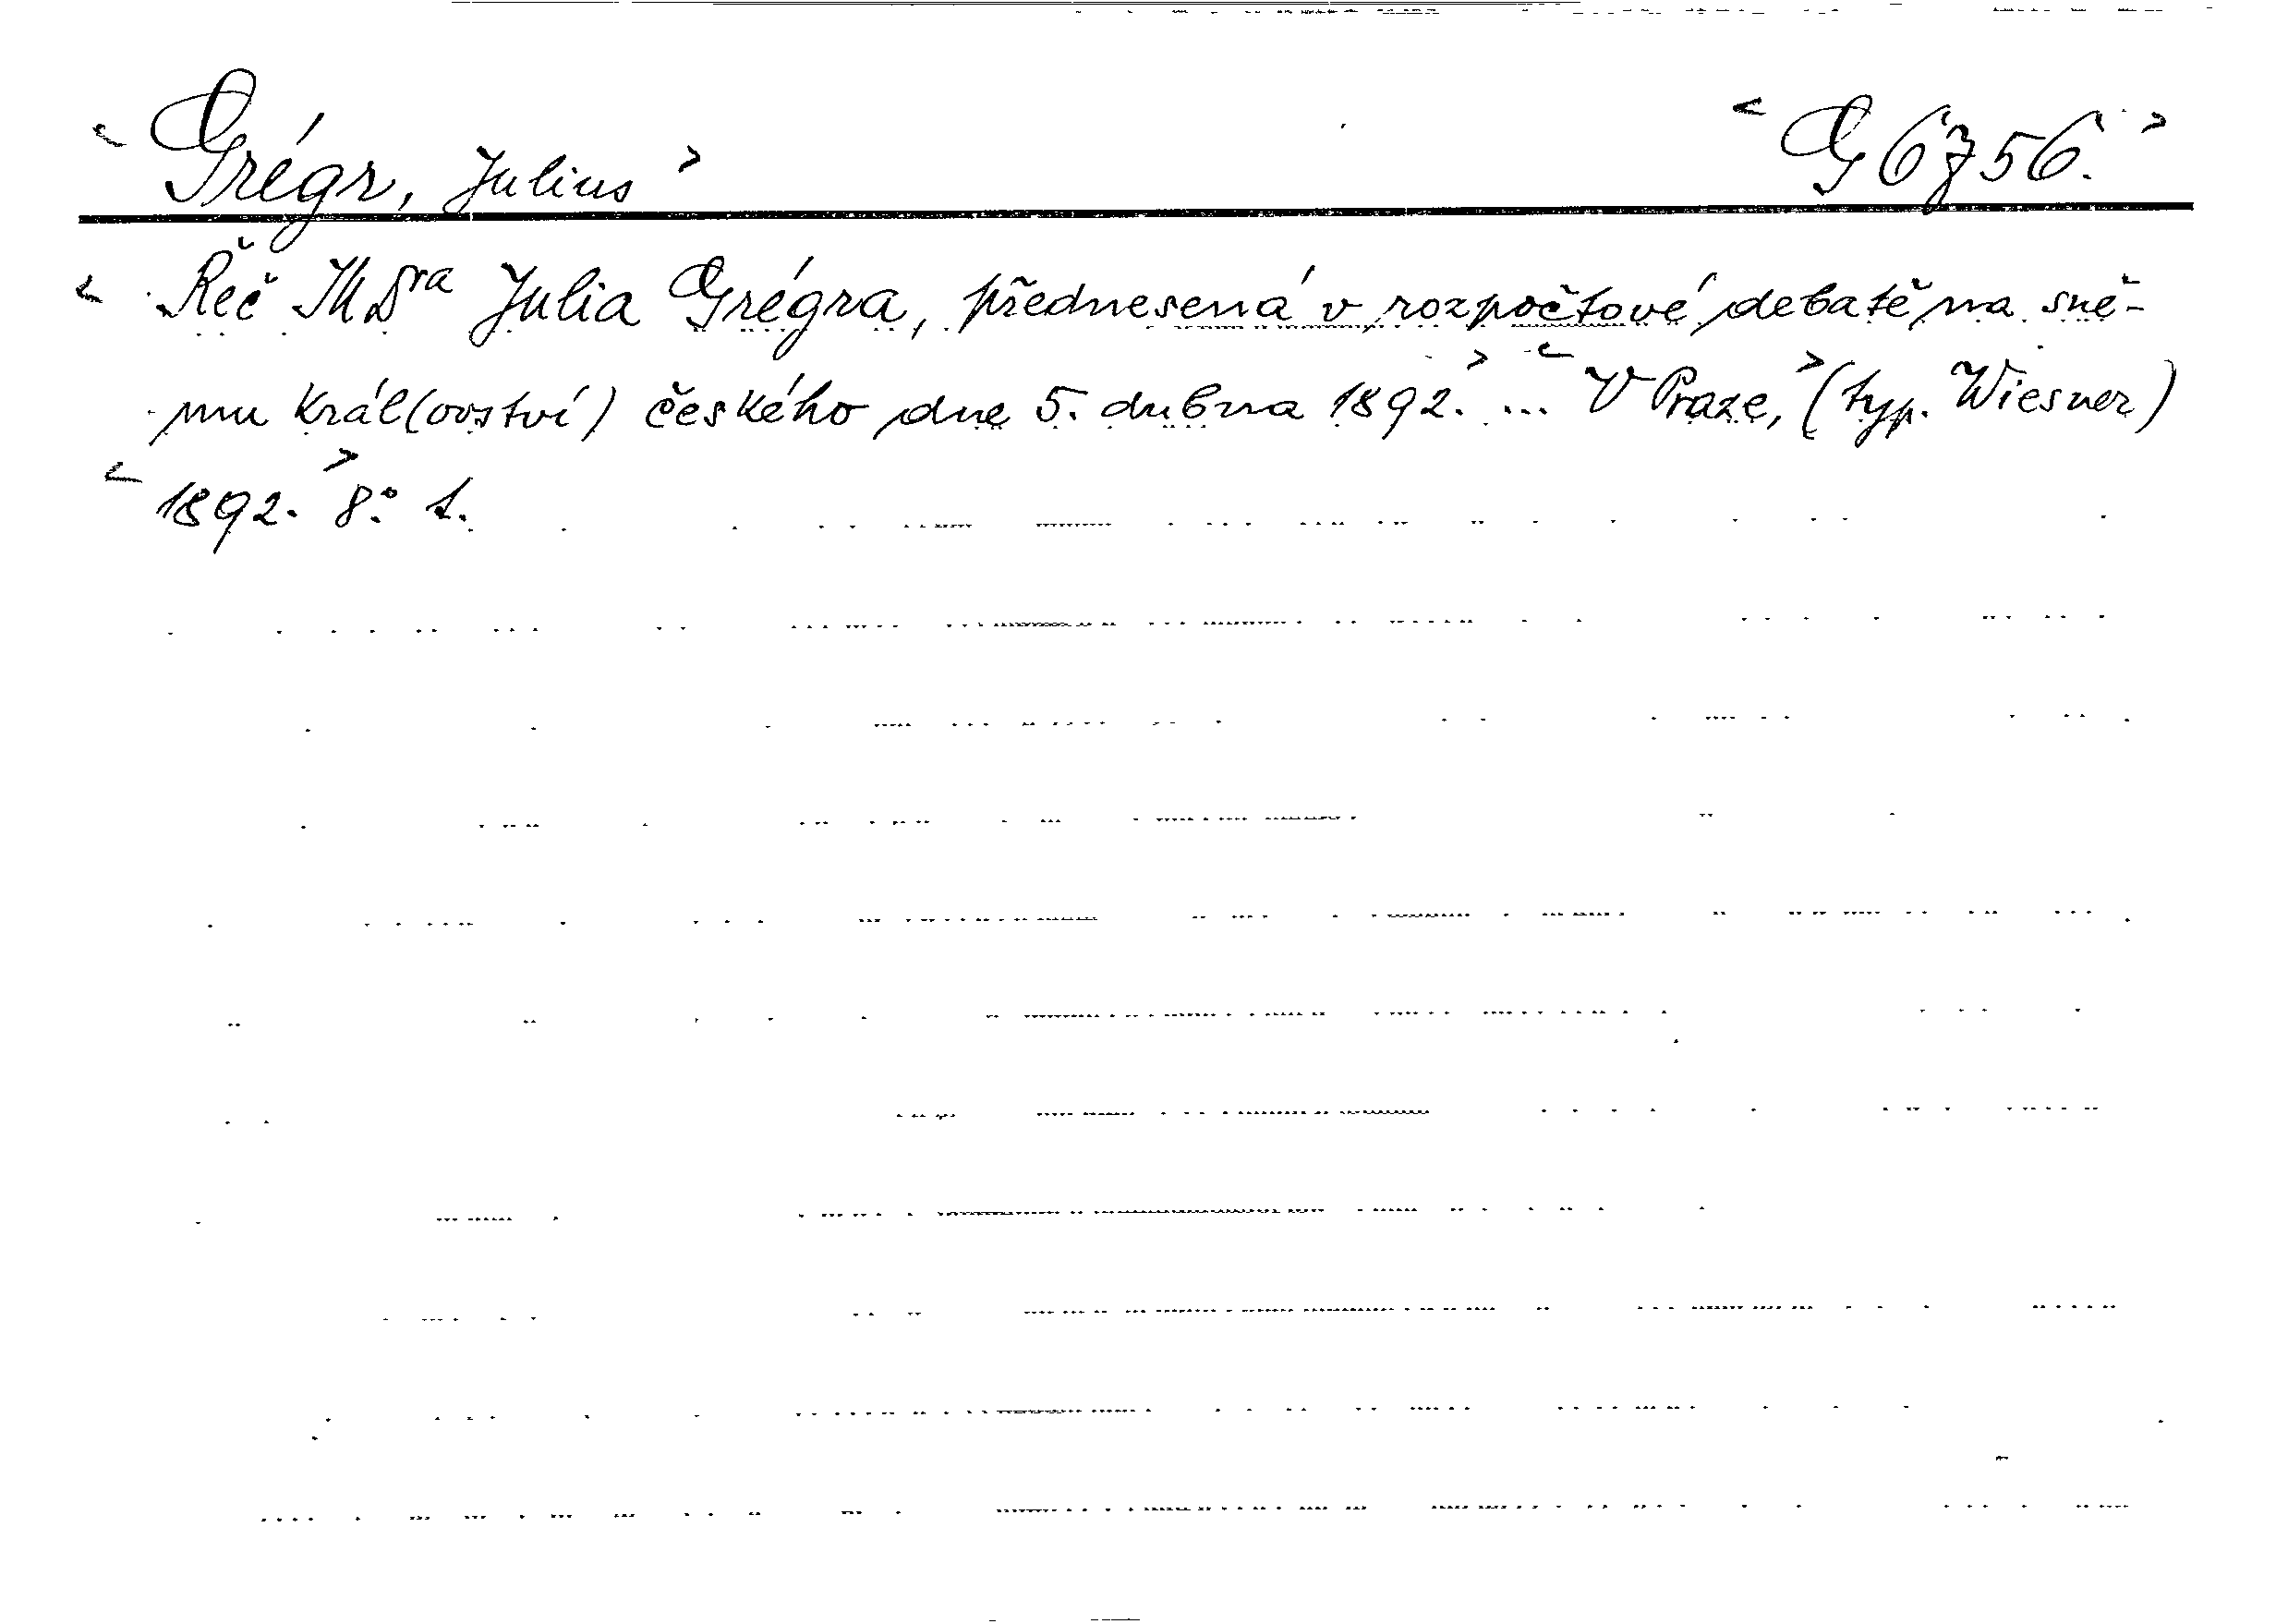 < Grégr, Julius > < G 6756. >
< Řeč JUDra Julia Grégra, přednesená v rozpočtové debatě na sně-
mu král(ovství) českého dne 5. dubna 1892. > ... < V Praze, > (typ. Wiesner)
< 1892. > 8° 1.